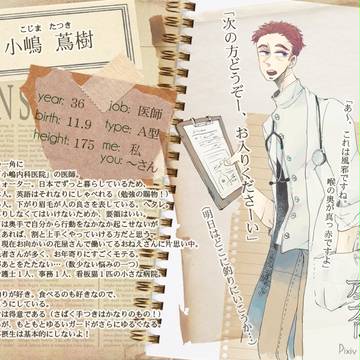 こじま たつき
小嶋 蔦樹
year: 36
job: 医師
birth: 11.9
type: A型
height: 175
me: 私
you: 〜さん
「次の方どうぞー、お入りくださーい」
（明日はどこに釣りいこうか？）
「あ〜、これは風邪ですね
喉の奥が真っ赤ですよ」
一角に
「小嶋内科医院」の医師。
ォーター。日本でずっと暮らしているため、
人。英語はそれなりにしゃべれる（勉強の賜物！）
人。下がり眉毛が人の良さを表している。ヘタレ。
りしなくてはいけないためか、要領はいい。
は奥手で自分から行動をなかなか起こせないが
あれば、割と上手くやっていける方だと思う
現在お向かいの花屋さんで働いてるおねえさんに片思い中。
者さんが多く、お年寄りにすこぶるモテる。
があとをたたない…（数少ない悩みの一つ）
護士1人、事務1人、看板猫1匹の小さな病院。
釣りが好き。食べるのも好きなので、
うにしている。
は得意である（さばく手つきはかなりのもの！）
が、もともとゆるいガードがさらにゆるくなる。
摂生は基本的に しない！
Pixiv